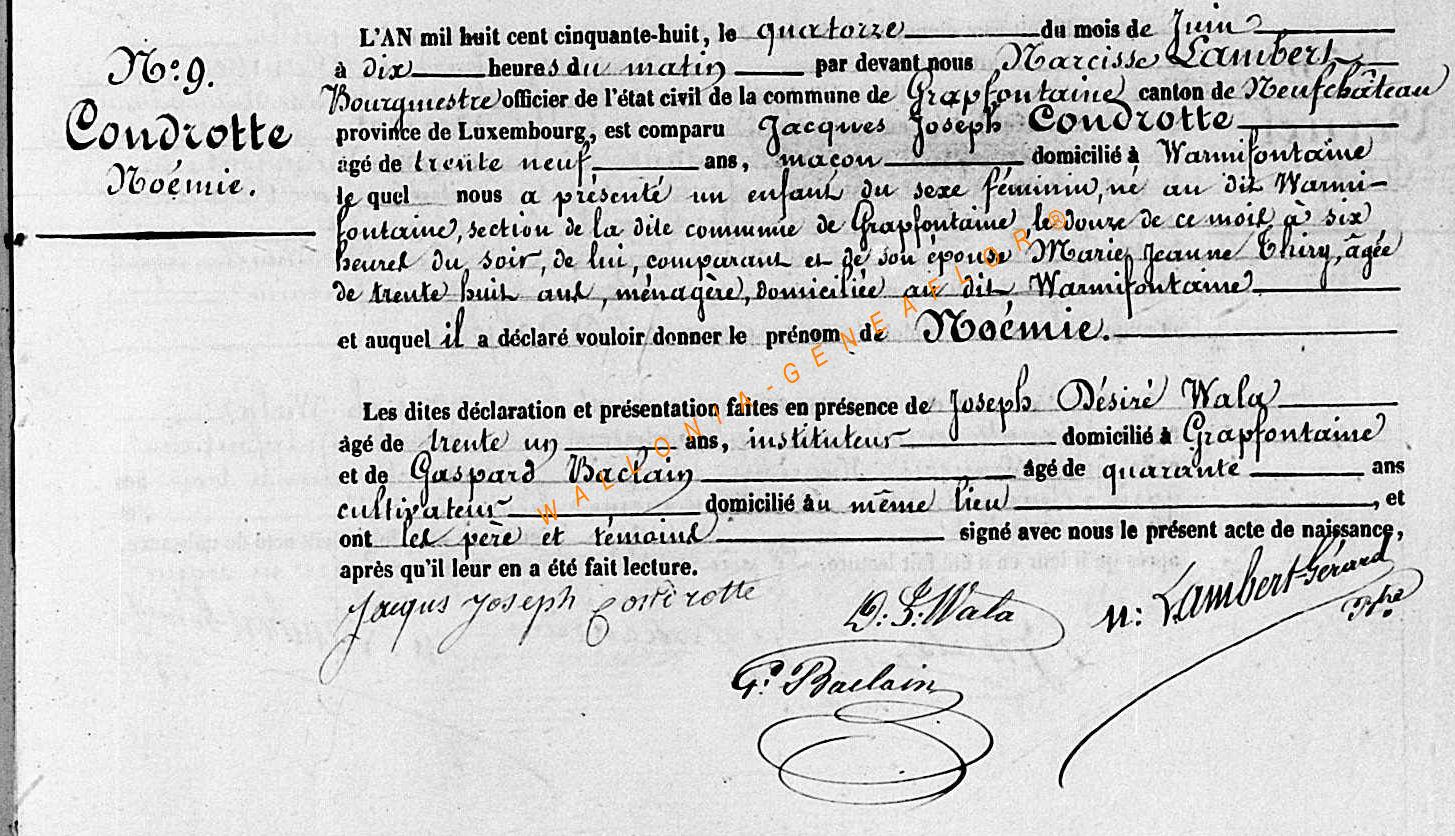 N.o 9.
Condrotte
Noémie.
L'AN mil huit cent cinquante-huit, le quatorze du mois de Juin
à dix heures du matin par devant nous Narcisse Lambert,
Bourgmestre officier de l'état civil de la commune de Grapfontaine canton de Neufchâteau
province de Luxembourg, est comparu Jacques Joseph Condrotte
âgé de trente neuf, ans, maçon domicilié à Warmifontaine
le quel nous a présenté un enfant du sexe féminin, né au dit Warmi-
fontaine, section de la dite commune de Grapfontaine, le douze de ce mois à six
heures du soir, de lui, comparant et de son épouse Marie, Jeanne Thiry, âgée
de trente huit ans, ménagère, domiciliée au dit Warmifontaine
et auquel il a déclaré vouloir donner le prénom de Noémie.
Les dites déclaration et présentation faites en présence de Joseph Désiré Wala
âgé de trente un ans, instituteur domicilié à Grapfontaine
et de Gaspard Baclain âgé de quarante ans
cultivateur domicilié au même lieu, et
ont les père et témoins signé avec nous le présent acte de naissance,
après qu'il leur en a été fait lecture.
Jacqus Joseph Condrotte
D. J. Wala
N: Lambert-Gérard
G. Baclain
WALLONIA-GENEAFLOR ®